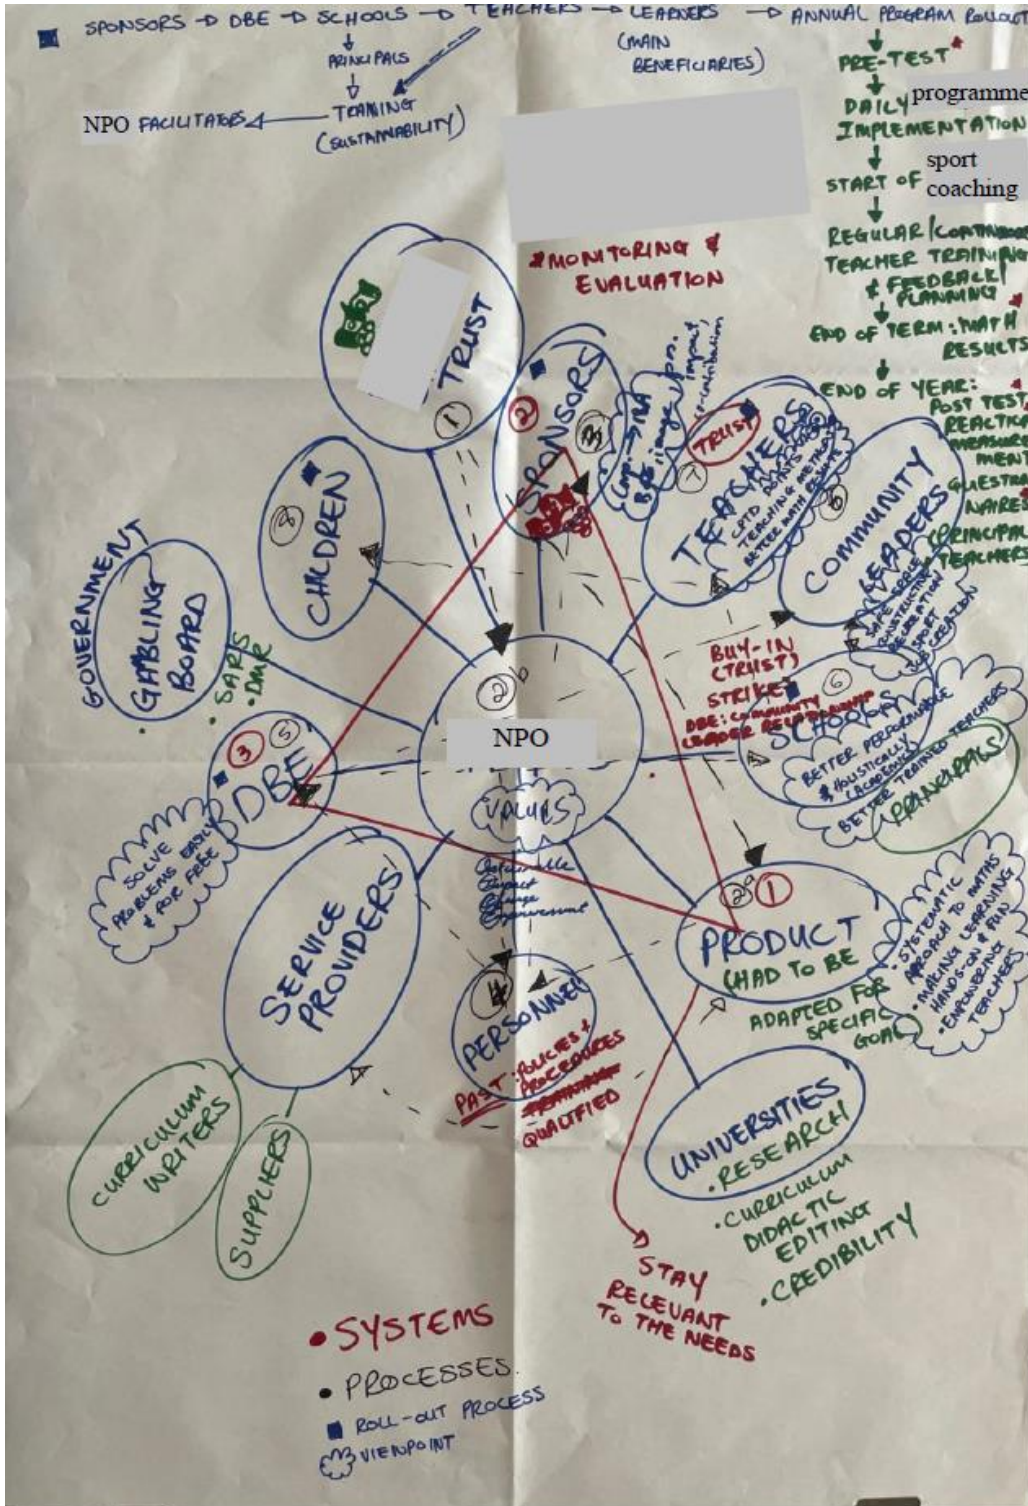 SPONSORS → DBE → SCHOOLS → TEACHERS → LEARNERS → ANNUAL PROGRAM ROLLOUT
PRINCIPALS
(MAIN
BENEFICIARIES)
TRAINING
(SUSTAINABILITY)
NPO FACILITATORS
PRE-TEST*
DAILY programme
IMPLEMENTATION
START OF sport
coaching
REGULAR/CONTINUOUS
TEACHER TRAINING
& FEEDBACK/
PLANNING
END OF TERM: MATH
RESULTS
END OF YEAR:
POST TEST
REACTION
MEASURE
MENT
QUESTION
NAIRES
(PRINCIPAL
TEACHERS)
*MONITORING &
EVALUATION
TRUST
1
2
SPONSORS
3
Comp. → M&A
BEE image
impact,
contribution
TRUST
7
TEACHERS
CPTD POINTS
TEACHING METHODS
BETTER MATH RESULTS
6
COMMUNITY
LEADERS
SAFE SPACE
CONSTRUCTIVE
RECREATION
SPORT
JOB CREATION
8
CHILDREN
GOVERNMENT
GAMBLING
BOARD
• SARS
• DMR
3 5
DBE
SOLVE
PROBLEMS EASILY
& FOR FREE
2b
NPO
VALUES
Impact
BUY-IN
(TRUST)
STRIKE
DBE: COMMUNITY
LEADER RELATIONSHIP
6
SCHOOLS
BETTER PERFORMANCE
& HOLISTICALLY
(ACADEMICS)
BETTER TRAINED TEACHERS
PRINCIPALS
SERVICE
PROVIDERS
CURRICULUM
WRITERS
SUPPLIERS
4
PERSONNEL
PAST: POLICIES &
PROCEDURES
TRAINING
QUALIFIED
2a 1
PRODUCT
(HAD TO BE
ADAPTED FOR
SPECIFIC
GOAL)
• SYSTEMATIC
APPROACH TO MATHS
• MAKING LEARNING
HANDS-ON & FUN
• EMPOWERING
TEACHERS
UNIVERSITIES
• RESEARCH
• CURRICULUM
DIDACTIC
EDITING
• CREDIBILITY
STAY
RELEVANT
TO THE NEEDS
• SYSTEMS
• PROCESSES.
ROLL-OUT PROCESS
VIEWPOINT